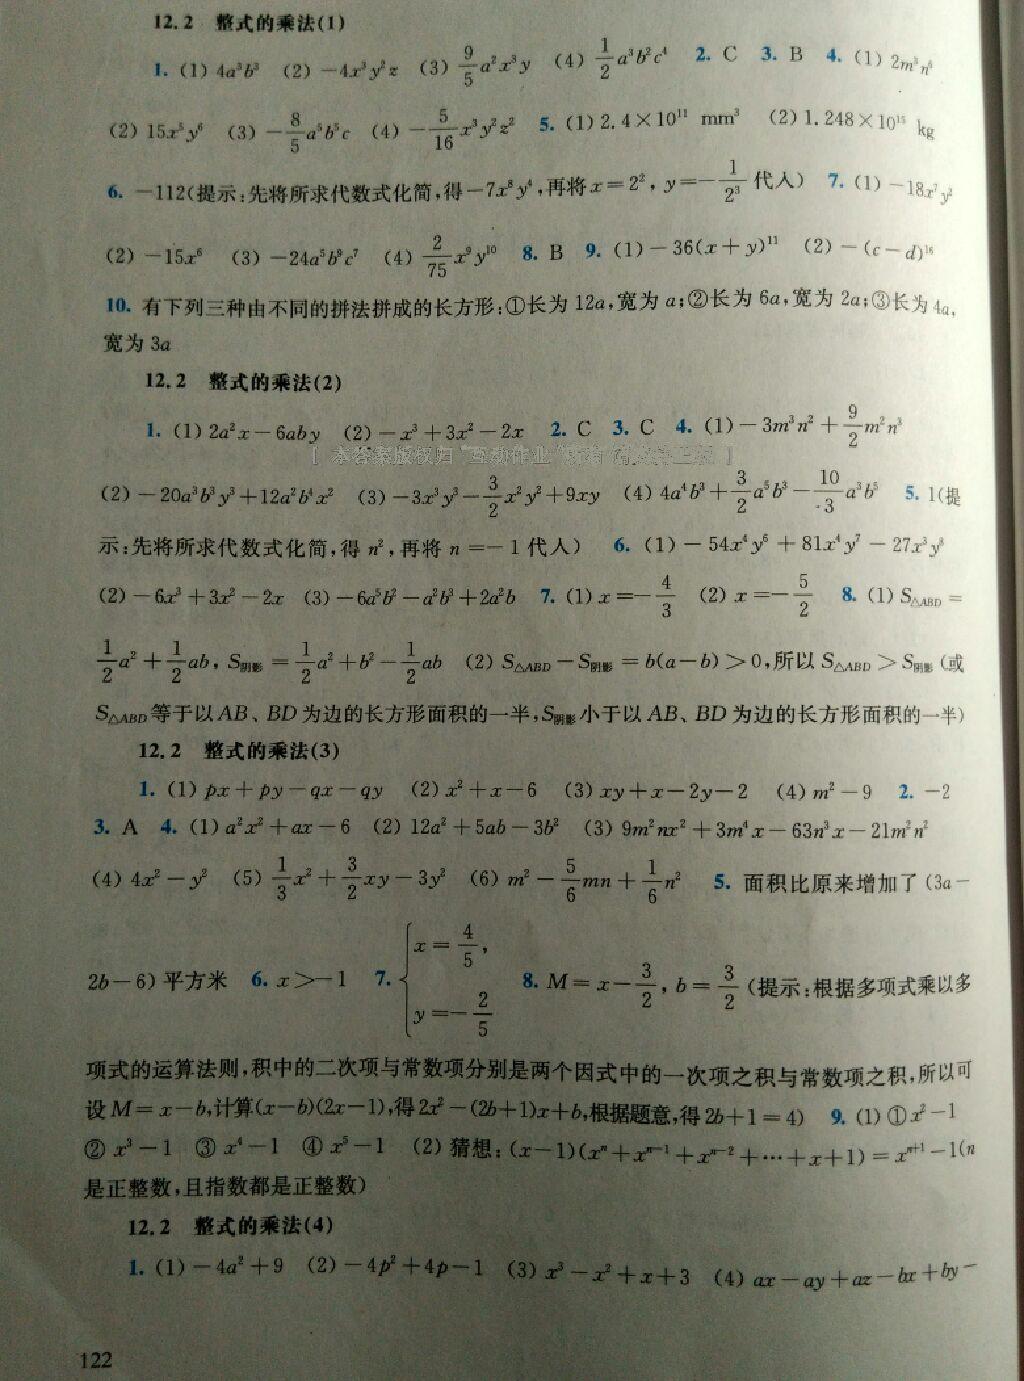 12.2 整式的乘法(1)
1. (1) 4a³b³ (2) －4x³y²z (3) 9/5 a²x³y (4) 1/2 a³b²c⁴ 2. C 3. B 4. (1) 2m³n⁶
(2) 15x⁵y⁶ (3) －8/5 a⁵b⁵c (4) －5/16 x³y²z² 5. (1) 2.4×10¹¹ mm³ (2) 1.248×10¹⁵ kg
6. －112(提示:先将所求代数式化简,得－7x⁸y⁴,再将 x＝2², y＝－1/2³ 代入) 7. (1) －18x⁷y²
(2) －15x⁶ (3) －24a⁵b⁹c⁷ (4) 2/75 x⁹y¹⁰ 8. B 9. (1)－36(x＋y)¹¹ (2) －(c－d)¹⁶
10. 有下列三种由不同的拼法拼成的长方形:①长为 12a,宽为 a;②长为 6a,宽为 2a;③长为 4a,
宽为 3a
12.2 整式的乘法(2)
1. (1) 2a²x－6aby (2) －x³＋3x²－2x 2. C 3. C 4. (1)－3m³n²＋9/2 m²n³
[ 本答案版权归"互动作业"所有 ]
(2)－20a³b³y³＋12a²b⁴x² (3) －3x³y³－3/2 x²y²＋9xy (4) 4a⁴b³＋3/2 a⁵b³－10/3 a³b⁵ 5. 1(提
示:先将所求代数式化简,得 n²,再将 n＝－1 代入) 6. (1)－54x⁴y⁶＋81x⁴y⁷－27x³y⁸
(2)－6x³＋3x²－2x (3)－6a⁵b²－a²b³＋2a²b 7. (1) x＝－4/3 (2) x＝－5/2 8. (1) S△ABD＝
1/2 a²＋1/2 ab, S阴影＝1/2 a²＋b²－1/2 ab (2) S△ABD－S阴影＝b(a－b)＞0,所以 S△ABD＞S阴影 (或
S△ABD 等于以 AB、BD 为边的长方形面积的一半,S阴影 小于以 AB、BD 为边的长方形面积的一半)
12.2 整式的乘法(3)
1. (1) px＋py－qx－qy (2) x²＋x－6 (3) xy＋x－2y－2 (4) m²－9 2. －2
3. A 4. (1) a²x²＋ax－6 (2) 12a²＋5ab－3b² (3) 9m²nx²＋3m⁴x－63n³x－21m²n²
(4) 4x²－y² (5) 1/3 x²＋3/2 xy－3y² (6) m²－5/6 mn＋1/6 n² 5. 面积比原来增加了 (3a－
2b－6) 平方米 6. x＞－1 7. {x＝4/5, y＝－2/5 8. M＝x－3/2, b＝3/2 (提示:根据多项式乘以多
项式的运算法则,积中的二次项与常数项分别是两个因式中的一次项之积与常数项之积,所以可
设 M＝x－b,计算(x－b)(2x－1),得2x²－(2b＋1)x＋b,根据题意,得2b＋1＝4) 9. (1) ①x²－1
② x³－1 ③ x⁴－1 ④ x⁵－1 (2) 猜想: (x－1)(xⁿ＋xⁿ⁻¹＋xⁿ⁻²＋⋯＋x＋1)＝xⁿ⁺¹－1(n
是正整数,且指数都是正整数)
12.2 整式的乘法(4)
1. (1)－4a²＋9 (2) －4p²＋4p－1 (3) x³－x²＋x＋3 (4) ax－ay＋az－bx＋by－
122